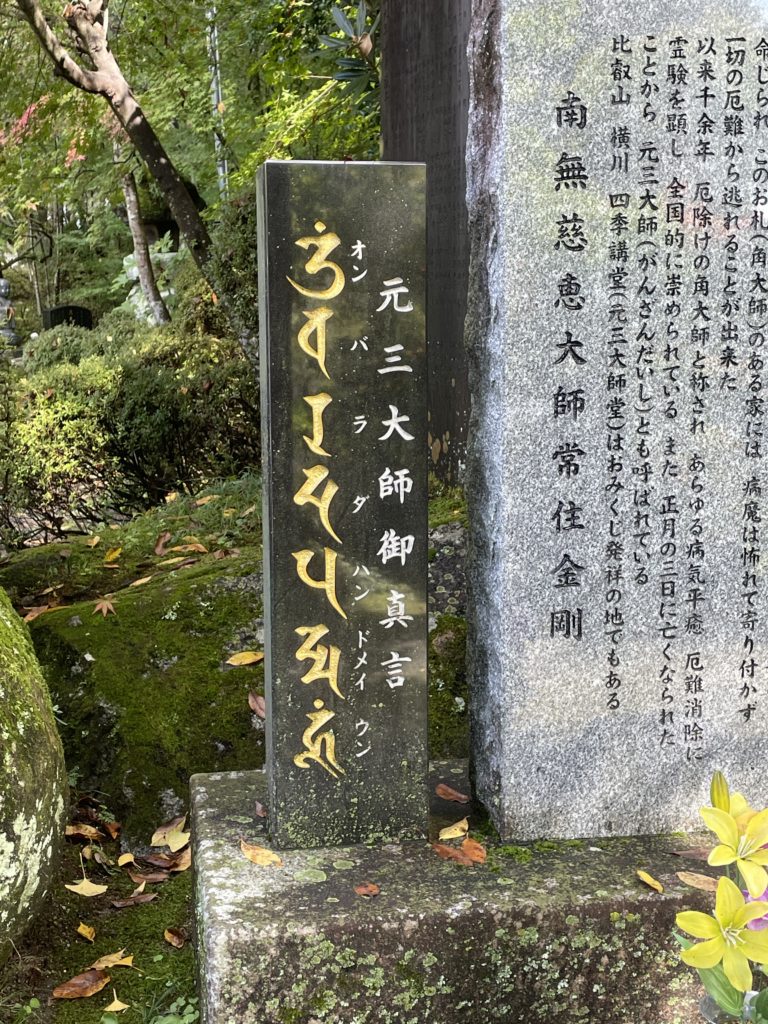 命じられ このお札(角大師)のある家には 病魔は怖れて寄り付かず
一切の厄難から逃れることが出来た
以来千余年 厄除けの角大師と称され あらゆる病気平癒 厄難消除に
霊験を顕し 全国的に崇められている また 正月の三日に亡くなられた
ことから 元三大師(がんざんだいし)とも呼ばれている
比叡山 横川 四季講堂(元三大師堂)はおみくじ発祥の地でもある
南無慈恵大師常住金剛
元三大師御真言
オン バ ラ ダ ハン ドメイ ウン
𑖌𑖼 𑖪 𑖨 𑖟 𑖢 𑖟𑖿𑖦𑖸 𑖮𑖳𑖽